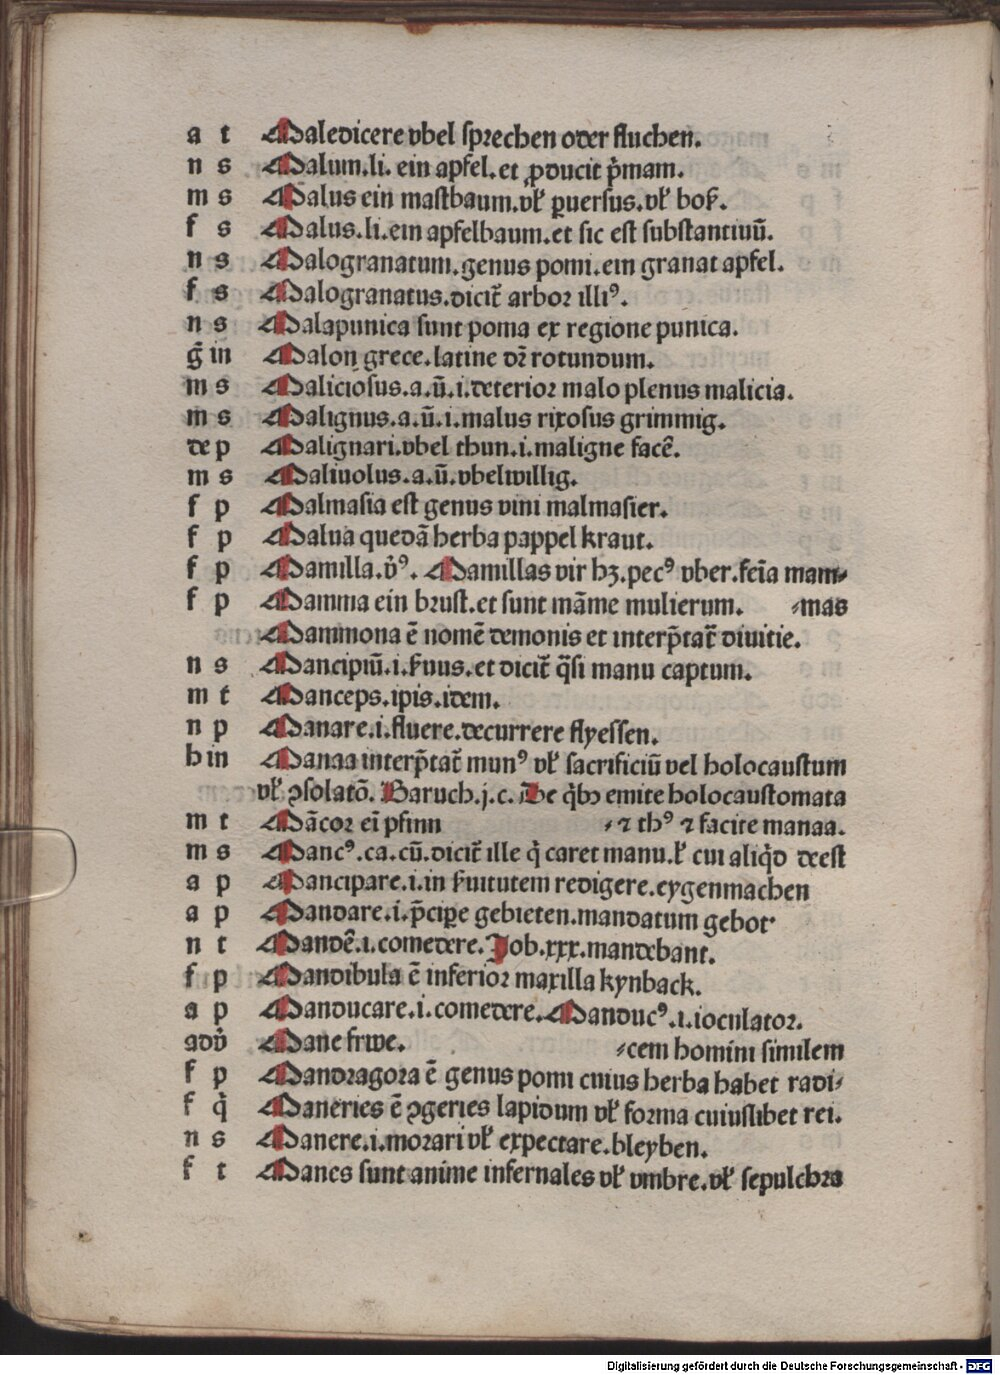 a t Maledicere vbel sprechen oder fluchen.
n s Malum.li. ein apfel.et ꝓducit p̄mam.
m s Malus ein mastbaum.vł ꝑuersus.vł boß.
f s Malus.li.ein apfelbaum.et sic est substantiuū.
n s Malogranatum.genus pomi.ein granat apfel.
f s Malogranatus.dicit̄ arbor illiꝰ.
n s Malapunica sunt poma ex regione punica.
ḡ in Malon grece.latine dr̄ rotundum.
m s Maliciosus.a.ū.i.deterior malo plenus malicia.
m s Malignus.a.ū.i.malus rixosus grimmig.
de p Malignari.vbel thun.i.maligne facē.
m s Maliuolus.a.ū.vbelwillig.
f p Malmasia est genus vini malmasier.
f p Malua quedā herba pappel kraut.
f p Mamilla.v̄ꝰ. Mamillas vir hꝫ.pecꝰ vber.feīa mam⸗
f p Mamma ein brust.et sunt mām̄e mulierum. ⸗mas
Mammona ē nomē demonis et interp̄tat̄ diuitie.
n s Mancipiū.i.ẜuus.et dicit̄ q̄si manu captum.
m t Manceps.ipis.idem.
n p Manare.i.fluere.decurrere flyessen.
b in Manaa interp̄tat̄ munꝰ vł sacrificiū vel holocaustum
vł ꝯsolatō. Baruch.j.c. De q̄bꝫ emite holocaustomata
m t Mācor eī pfinn ⸗⁊ thꝰ ⁊ facite manaa.
m s Mancꝰ.ca.cū.dicit̄ ille q̄ caret manu.ł cui aliq̄d deest
a p Mancipare.i.in ẜuitutem redigere.eygenmachen
a p Mandare.i.p̄ciꝑe gebieten.mandatum gebot
n t Mandē.i.comedere.Job.xxx.mandebant.
f p Mandibula ē inferior maxilla kynback.
a p Manducare.i.comedere.Manducꝰ.i.ioculator.
adv̄ Mane frwe. ⸗cem homini similem
f p Mandragora ē genus pomi cuius herba habet radi⸗
f q̄ Maneries ē ꝯgeries lapidum vł forma cuiuslibet rei.
n s Manere.i.morari vł expectare.bleyben.
f t Manes sunt anime infernales vł vmbre.vł sepulchra
Digitalisierung gefördert durch die Deutsche Forschungsgemeinschaft - DFG